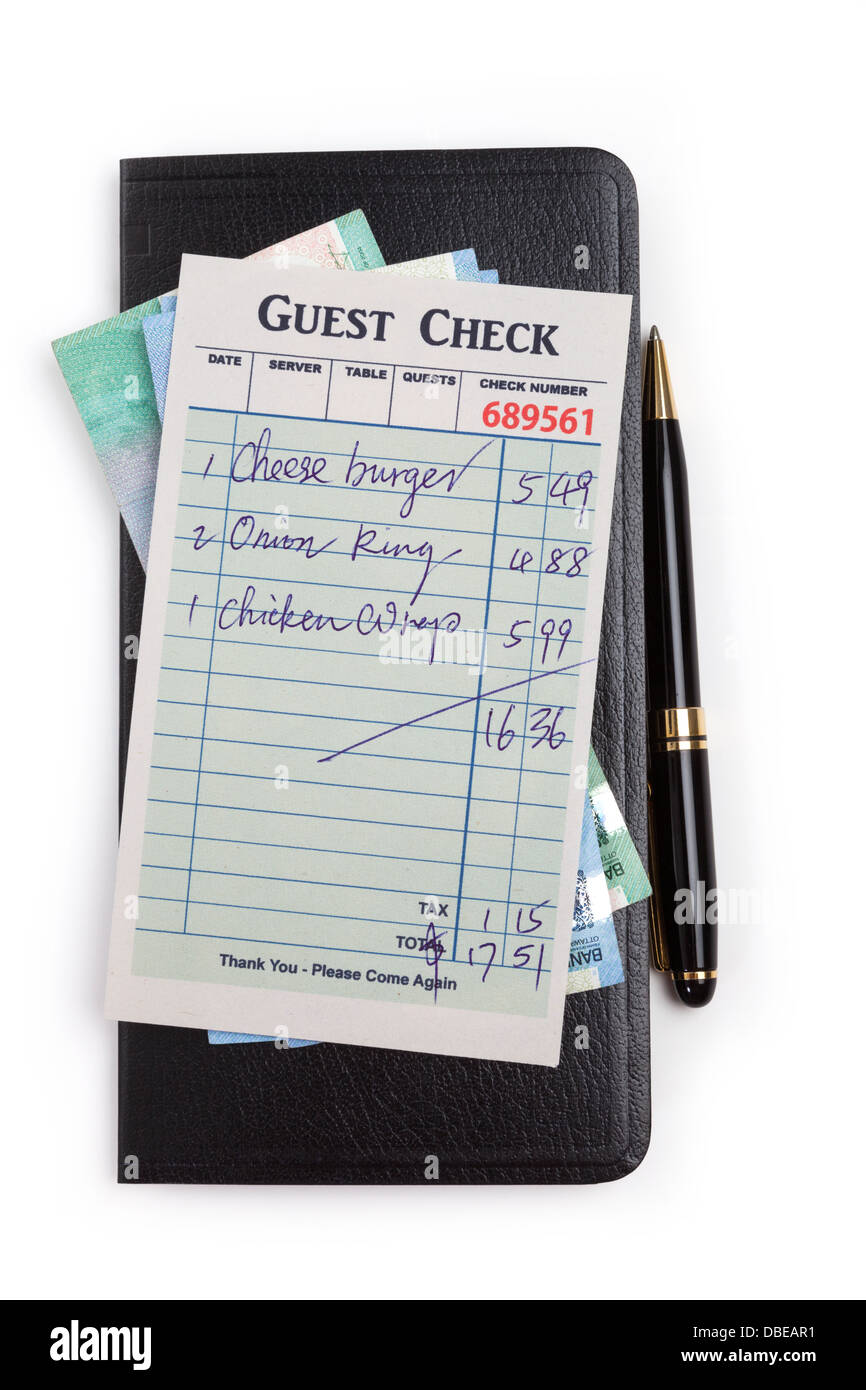 GUEST CHECK
DATE SERVER TABLE QUESTS CHECK NUMBER
689561
1 Cheese burger 5 49
2 Onion Ring 4 88
1 Chicken Wraps 5 99
16 36
TAX 1 15
TOTAL 17 51
Thank You - Please Come Again
BAN
OTTAWA
BAN
OTTAWA
alamy
a
a
a
a
alamy
Image ID: DBEAR1
www.alamy.com